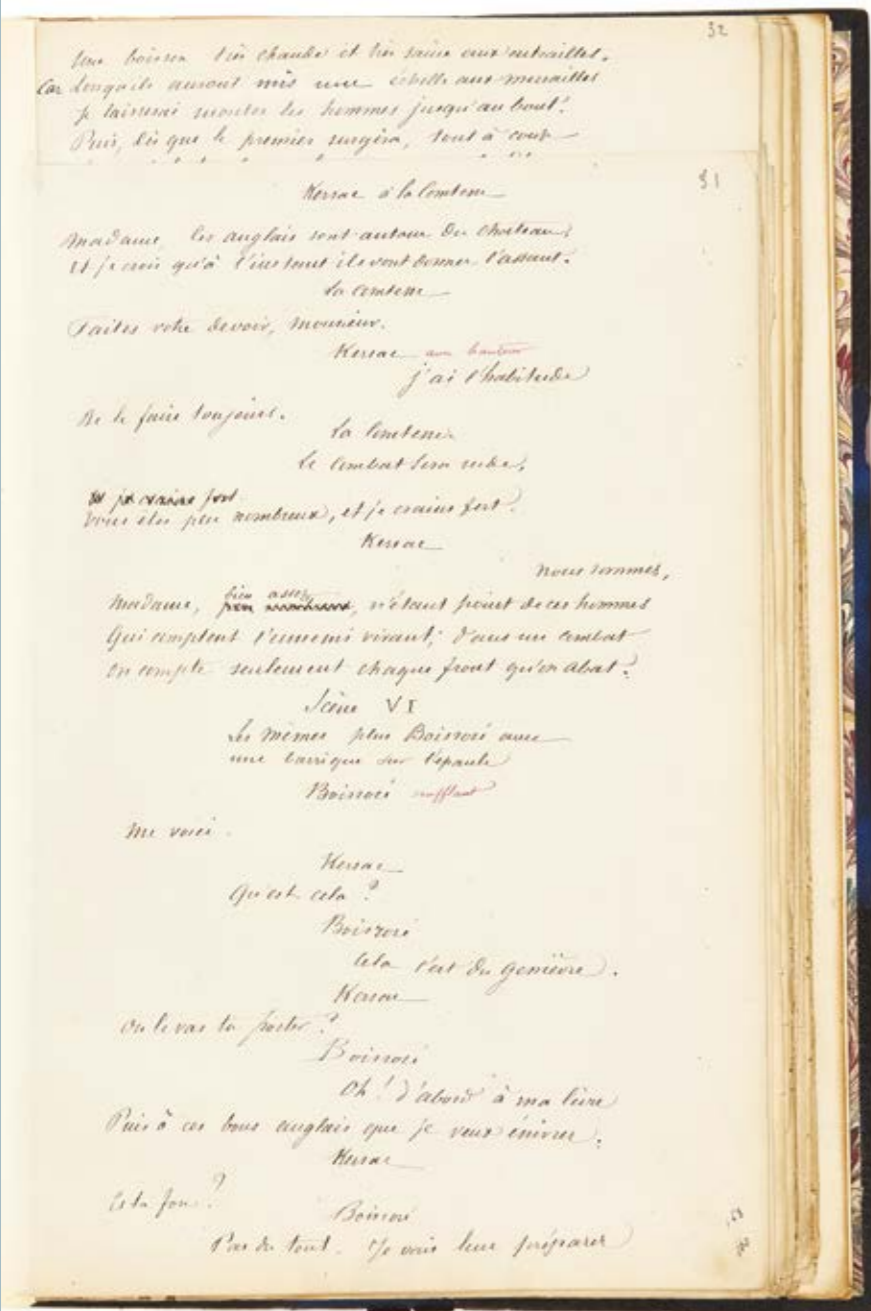 32
Une boisson très chaude et très saine aux entrailles.
Car Lorsqu'ils auront mis une échelle aux murailles
Je laisserai monter les hommes jusqu'au bout!
Puis, dès que le premier surgira, tout à coup
31
Kersac à la Comtesse
Madame, les anglais sont autour du château,
Et je crois qu'à l'instant ils vont donner l'assaut.
La Comtesse
Faites votre devoir, Monsieur.
Kersac avec hauteur
j'ai l'habitude
De le faire toujours.
La Comtesse
Le combat sera rude,
Et je crains fort
Vous êtes peu nombreux, et je crains fort.
Kersac
Nous sommes,
bien assez
Madame, peu nombreux, n'étant point de ces hommes
Qui comptent l'ennemi vivant; dans un combat
On compte seulement chaque front qu'on abat.
Scène VI
Les Mêmes plus Boisrosé avec
une barrique sur l'épaule
Boisrosé soufflant
Me voici.
Kersac
Qu'est cela?
Boisrosé
Cela c'est du genièvre.
Kersac
Où le vas tu porter?
Boisrosé
Oh! d'abord à ma lèvre
Puis à ces bons anglais que je veux énivrer.
Kersac
Es tu fou?
Boisrosé
Pas du tout. Je vais leur préparer